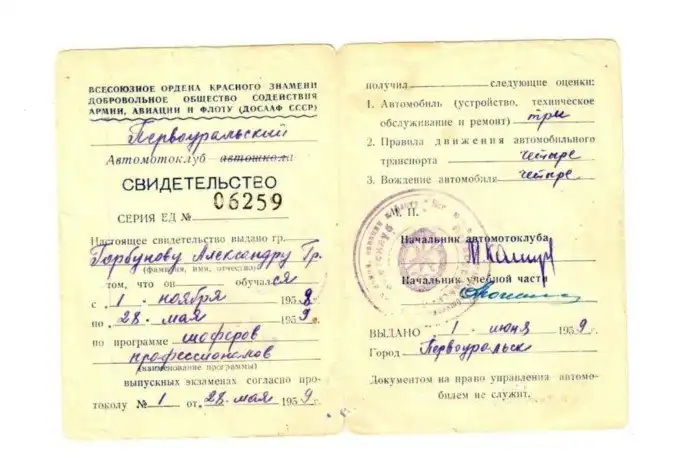 ВСЕСОЮЗНОЕ ОРДЕНА КРАСНОГО ЗНАМЕНИ
ДОБРОВОЛЬНОЕ ОБЩЕСТВО СОДЕЙСТВИЯ
АРМИИ, АВИАЦИИ И ФЛОТУ (ДОСААФ СССР)
Первоуральский
Автомотоклуб автошкола
СВИДЕТЕЛЬСТВО
СЕРИЯ ЕД № 06259
Настоящее свидетельство выдано гр.
Горбунову Александру Гр.
(фамилия, имя, отчество)
том, что он обучался
с 1 ноября 1958
по 28 мая 1959г.
по программе шоферов
профессионалов
(наименование программы)
выпускных экзаменах согласно про-
токолу № 1 от 28 мая 1959г.
получил следующие оценки:
1. Автомобиль (устройство, техническое
обслуживание и ремонт) три
2. Правила движения автомобильного
транспорта четыре
3. Вождение автомобиля четыре
М. П.
Начальник автомотоклуба
Начальник учебной части
ВЫДАНО 1 июня 1959г.
Город Первоуральск
Документом на право управления автомо-
билем не служит.